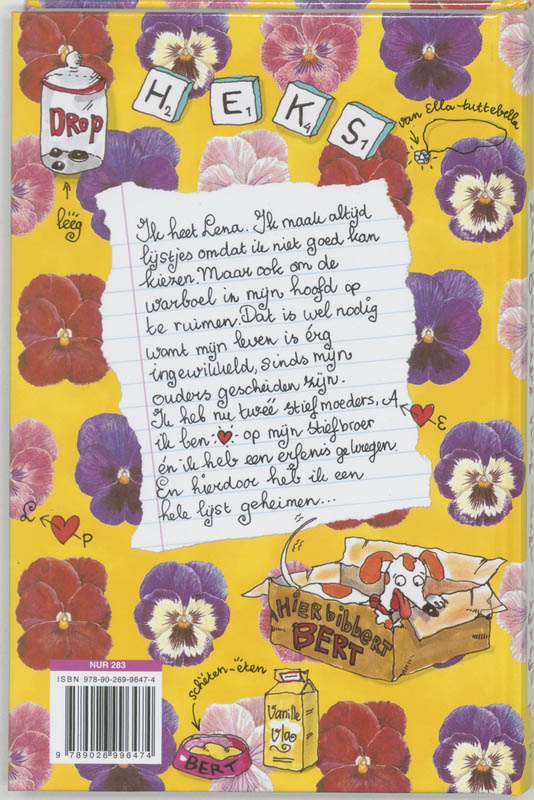 DROP
leeg
H2 E1 K4 S1
van Ella-tuttebella
Ik heet Lena. Ik maak altijd
lijstjes omdat ik niet goed kan
kiezen. Maar ook om de
warboel in mijn hoofd op
te ruimen. Dat is wel nodig
want mijn leven is érg
ingewikkeld, sinds mijn
ouders gescheiden zijn.
Ik heb nu twéé stiefmoeders,
ik ben ♥ op mijn stiefbroer
én ik heb een erfenis gekregen.
En hierdoor heb ik een
hele lijst geheimen...
A ♥ E
L ♥ P
Hier bibbert
BERT
NUR 283
ISBN 978-90-269-9647-4
9 789026 996474
schéten-éten
BERT
Vanille
Vla